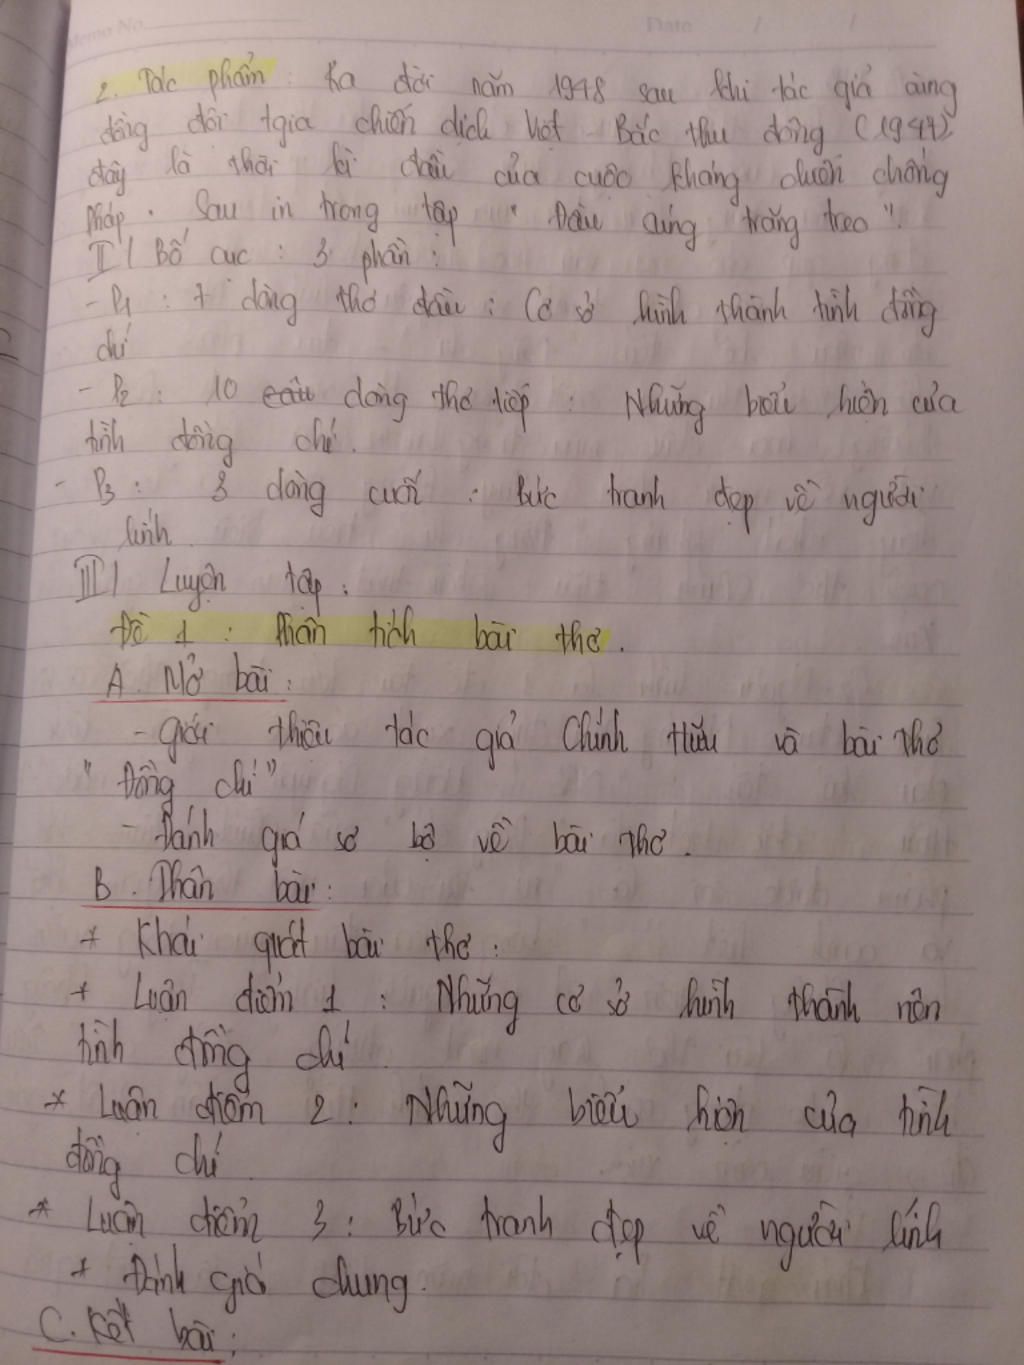 Memo No.
Date / /
2. Tác phẩm : Ra đời năm 1948 sau khi tác giả cùng
đồng đội tgia chiến dịch Việt - Bắc thu đông (1947)
đây là thời kì đầu của cuộc kháng chiến chống
Pháp. Sau in trong tập " Đầu súng trăng treo ".
II / Bố cục : 3 phần :
- P1 : 7 dòng thơ đầu : Cơ sở hình thành tình đồng
chí
- P2 : 10 câu dòng thơ tiếp : Những biểu hiện của
tình đồng chí.
- P3 : 3 dòng cuối : Bức tranh đẹp về người
lính
III / Luyện tập :
Đề 1 : Phân tích bài thơ.
A. Mở bài :
- giới thiệu tác giả Chính Hữu và bài thơ
" Đồng chí "
- Đánh giá sơ bộ về bài thơ.
B. Thân bài :
+ Khái quát bài thơ :
+ Luận điểm 1 : Những cơ sở hình thành nên
tình đồng chí
* Luận điểm 2 : Những biểu hiện của tình
đồng chí
* Luận điểm 3 : Bức tranh đẹp về người lính
+ Đánh giá chung.
C. Kết bài :